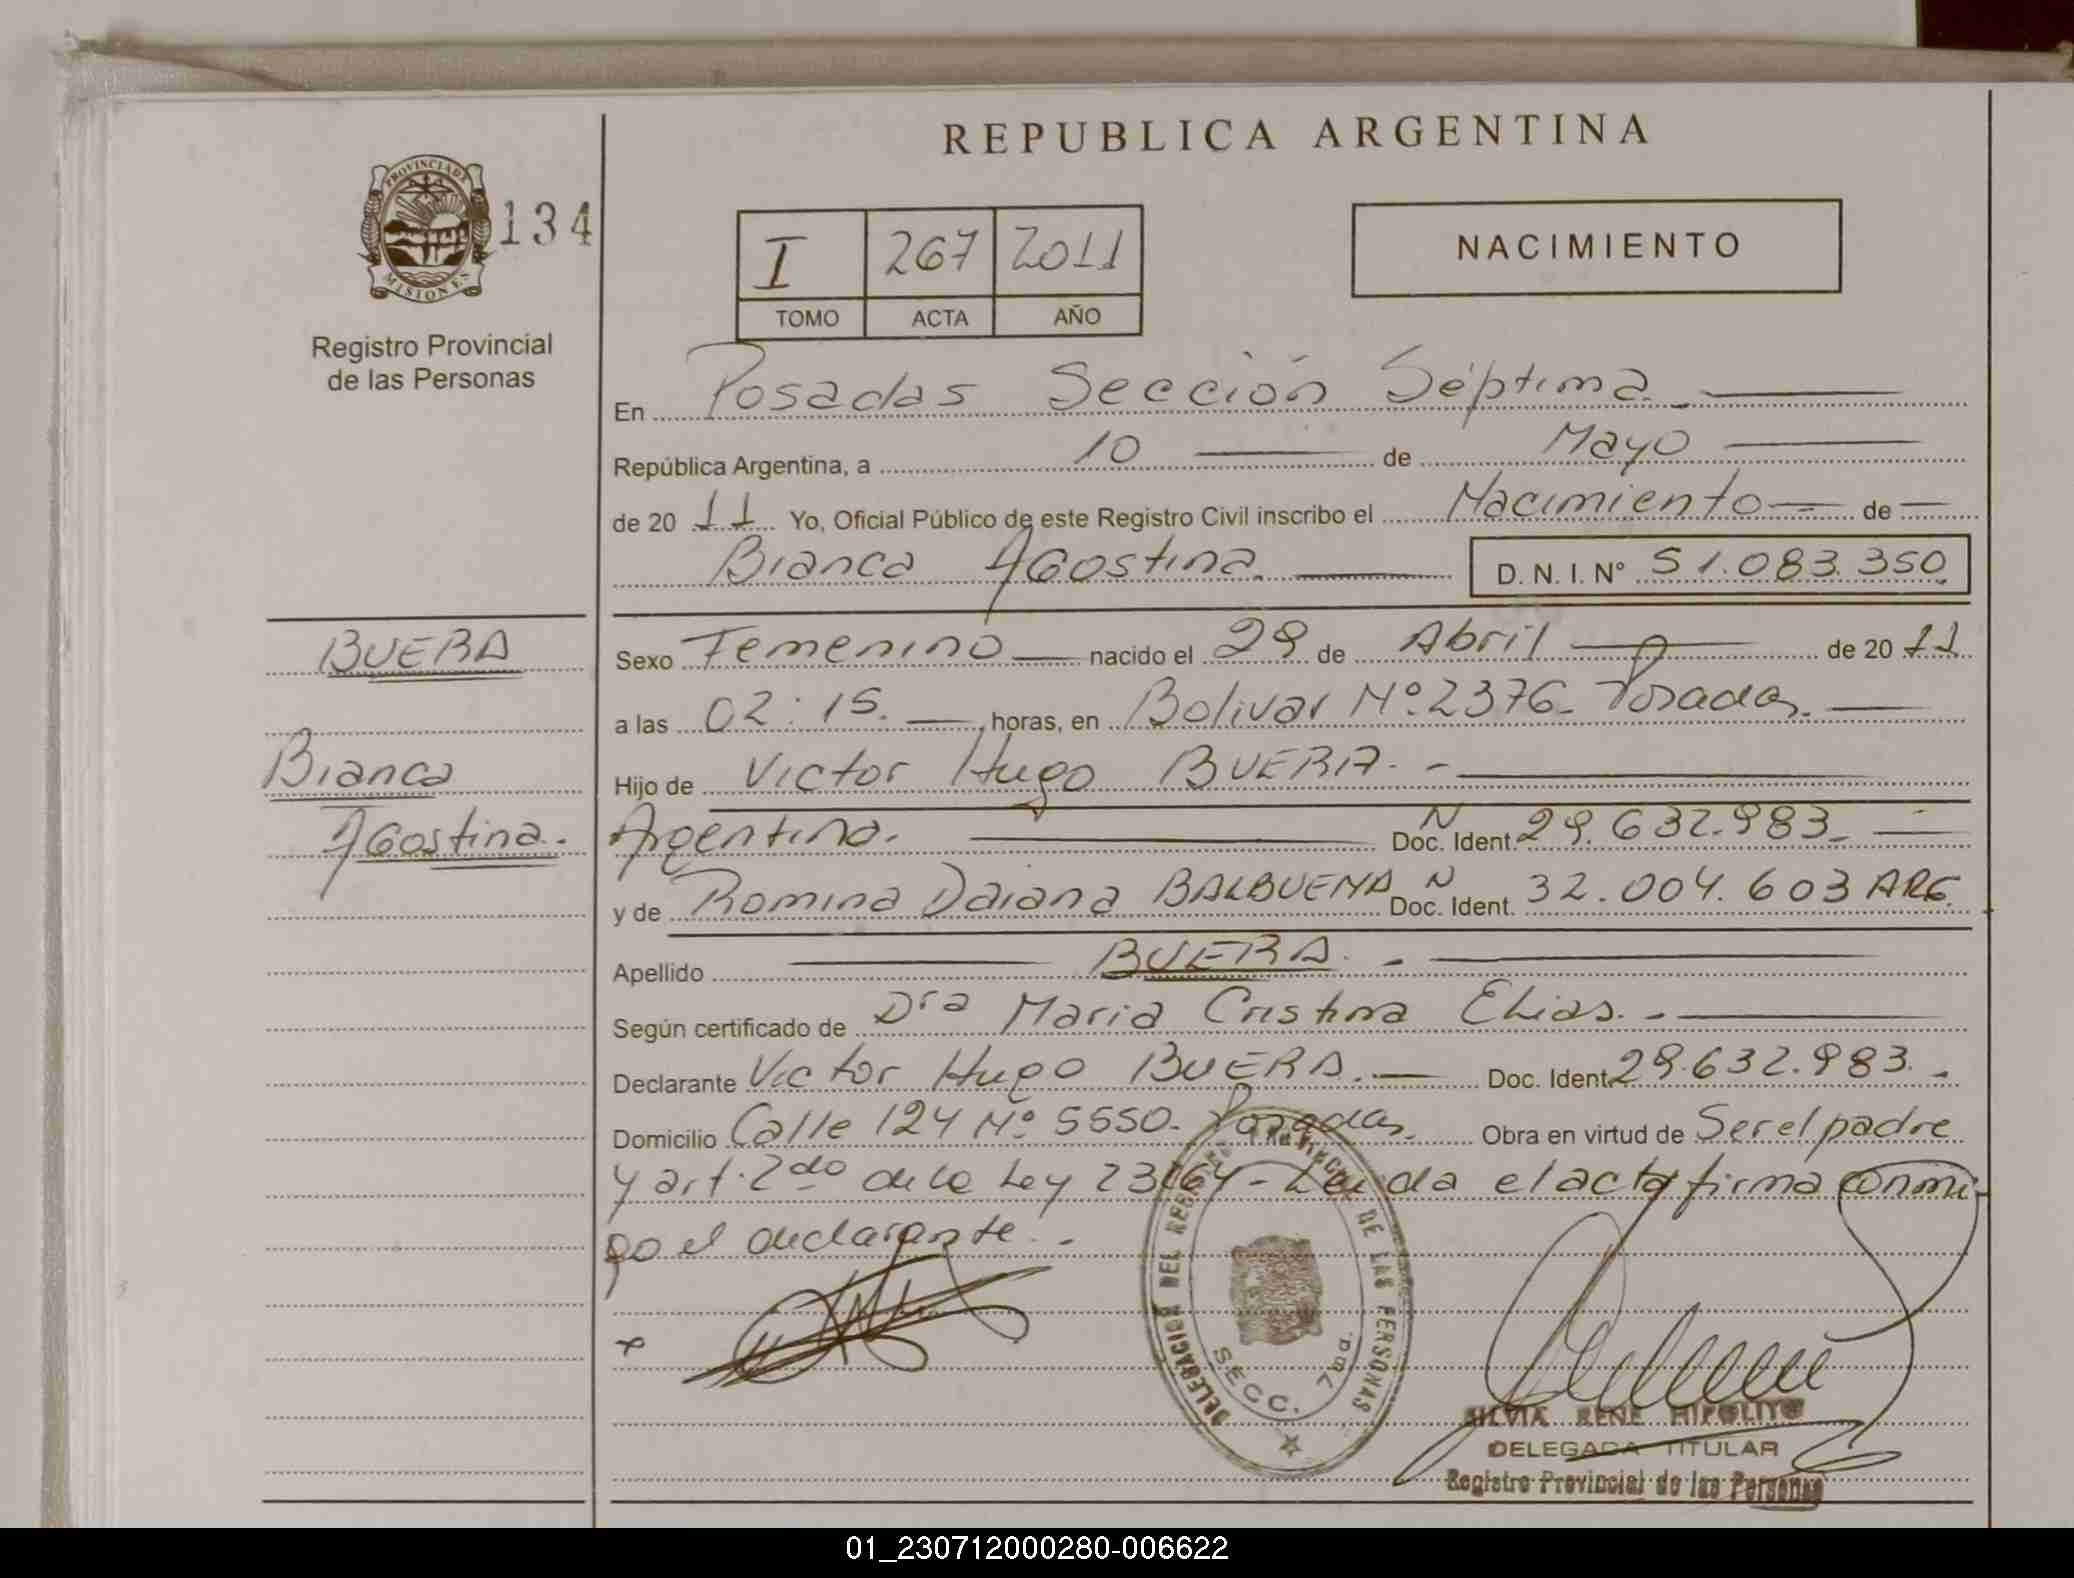 REPUBLICA ARGENTINA
PROVINCIA DE
MISIONES
134
Registro Provincial
de las Personas
I 267 2011
TOMO ACTA AÑO
NACIMIENTO
En Posadas Sección Séptima.
República Argentina, a 10 de Mayo
de 20 11 Yo, Oficial Público de este Registro Civil inscribo el Nacimiento de
Bianca Agostina. D. N. I. Nº 51.083.350
BUERA
Sexo Femenino nacido el 29 de Abril de 20 11
a las 02:15. horas, en Bolivar Nº 2376- Posadas.
Bianca
Hijo de Victor Hugo BUERA. -
Agostina.
Argentina. N Doc. Ident. 29.632.983.
y de Romina Daiana BALBUENA N Doc. Ident. 32.004.603 ARG.
Apellido BUERA. -
Según certificado de Dra Maria Cristina Elias. -
Declarante Victor Hugo BUERA. Doc. Ident. 29.632.983. -
Domicilio Calle 124 Nº 5550. Posadas. Obra en virtud de Ser el padre
y art. 2do de la Ley 23164 - Leida el acta firma conmi-
go el declarante. -
DELEGACION DEL REGISTRO PROVINCIAL DE LAS PERSONAS
SECC. 7ma.
SILVIA RENE HIPOLITO
DELEGADA TITULAR
Registro Provincial de las Personas
01_230712000280-006622